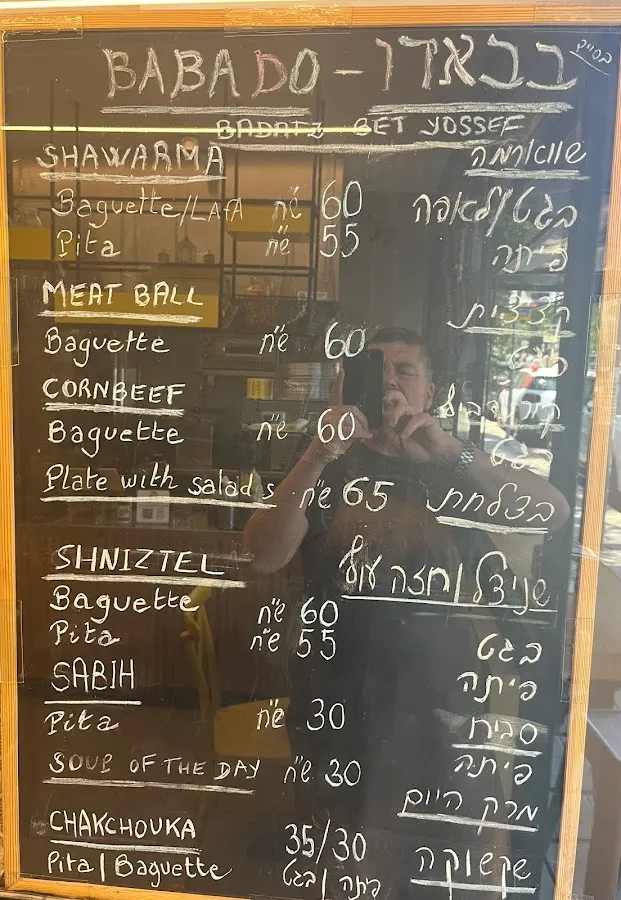 בס״ד
BABADO - בבאדו
BADATZ BET YOSSEF
SHAWARMA שווארמה
Baguette/LAFA ש״ח 60 בגט/לאפה
Pita ש״ח 55 פיתה
MEAT BALL קציצית
Baguette ש״ח 60 בגט
CORNBEEF קורנדביף
Baguette ש״ח 60 בגט
Plate with salads ש״ח 65 בצלחת
SHNIZTEL שניצל/חזה עוף
Baguette ש״ח 60 בגט
Pita ש״ח 55 פיתה
SABIH סביח
Pita ש״ח 30 פיתה
SOUP OF THE DAY ש״ח 30 מרק היום
CHAKCHOUKA 35/30 שקשוקה
Pita/Baguette פיתה/בגט